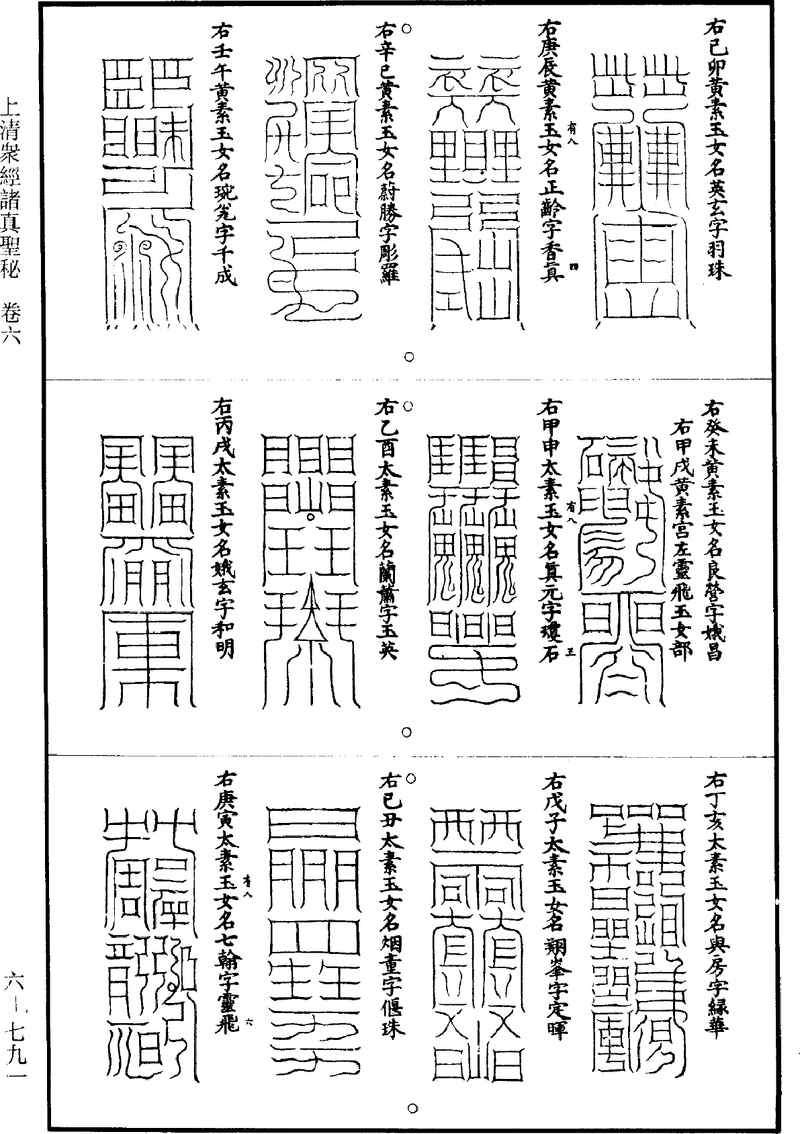 右己卯黃素玉女名英玄字羽珠
右庚辰黃素玉女名正齡字香真
有八
四
右辛巳黃素玉女名蔚勝字彫羅
右壬午黃素玉女名琬光字千成
右癸未黃素玉女名良營字娥昌
右甲戌黃素宮左靈飛玉女部
右甲申太素玉女名真元字瓊石
有八
五
右乙酉太素玉女名蘭蕭字玉英
右丙戌太素玉女名娥玄字和明
右丁亥太素玉女名與房字綠華
右戊子太素玉女名翔峯字定暉
右己丑太素玉女名烟童字偃珠
右庚寅太素玉女名七翰字靈飛
有八
六
上清衆經諸真聖秘　卷六
六—七九一